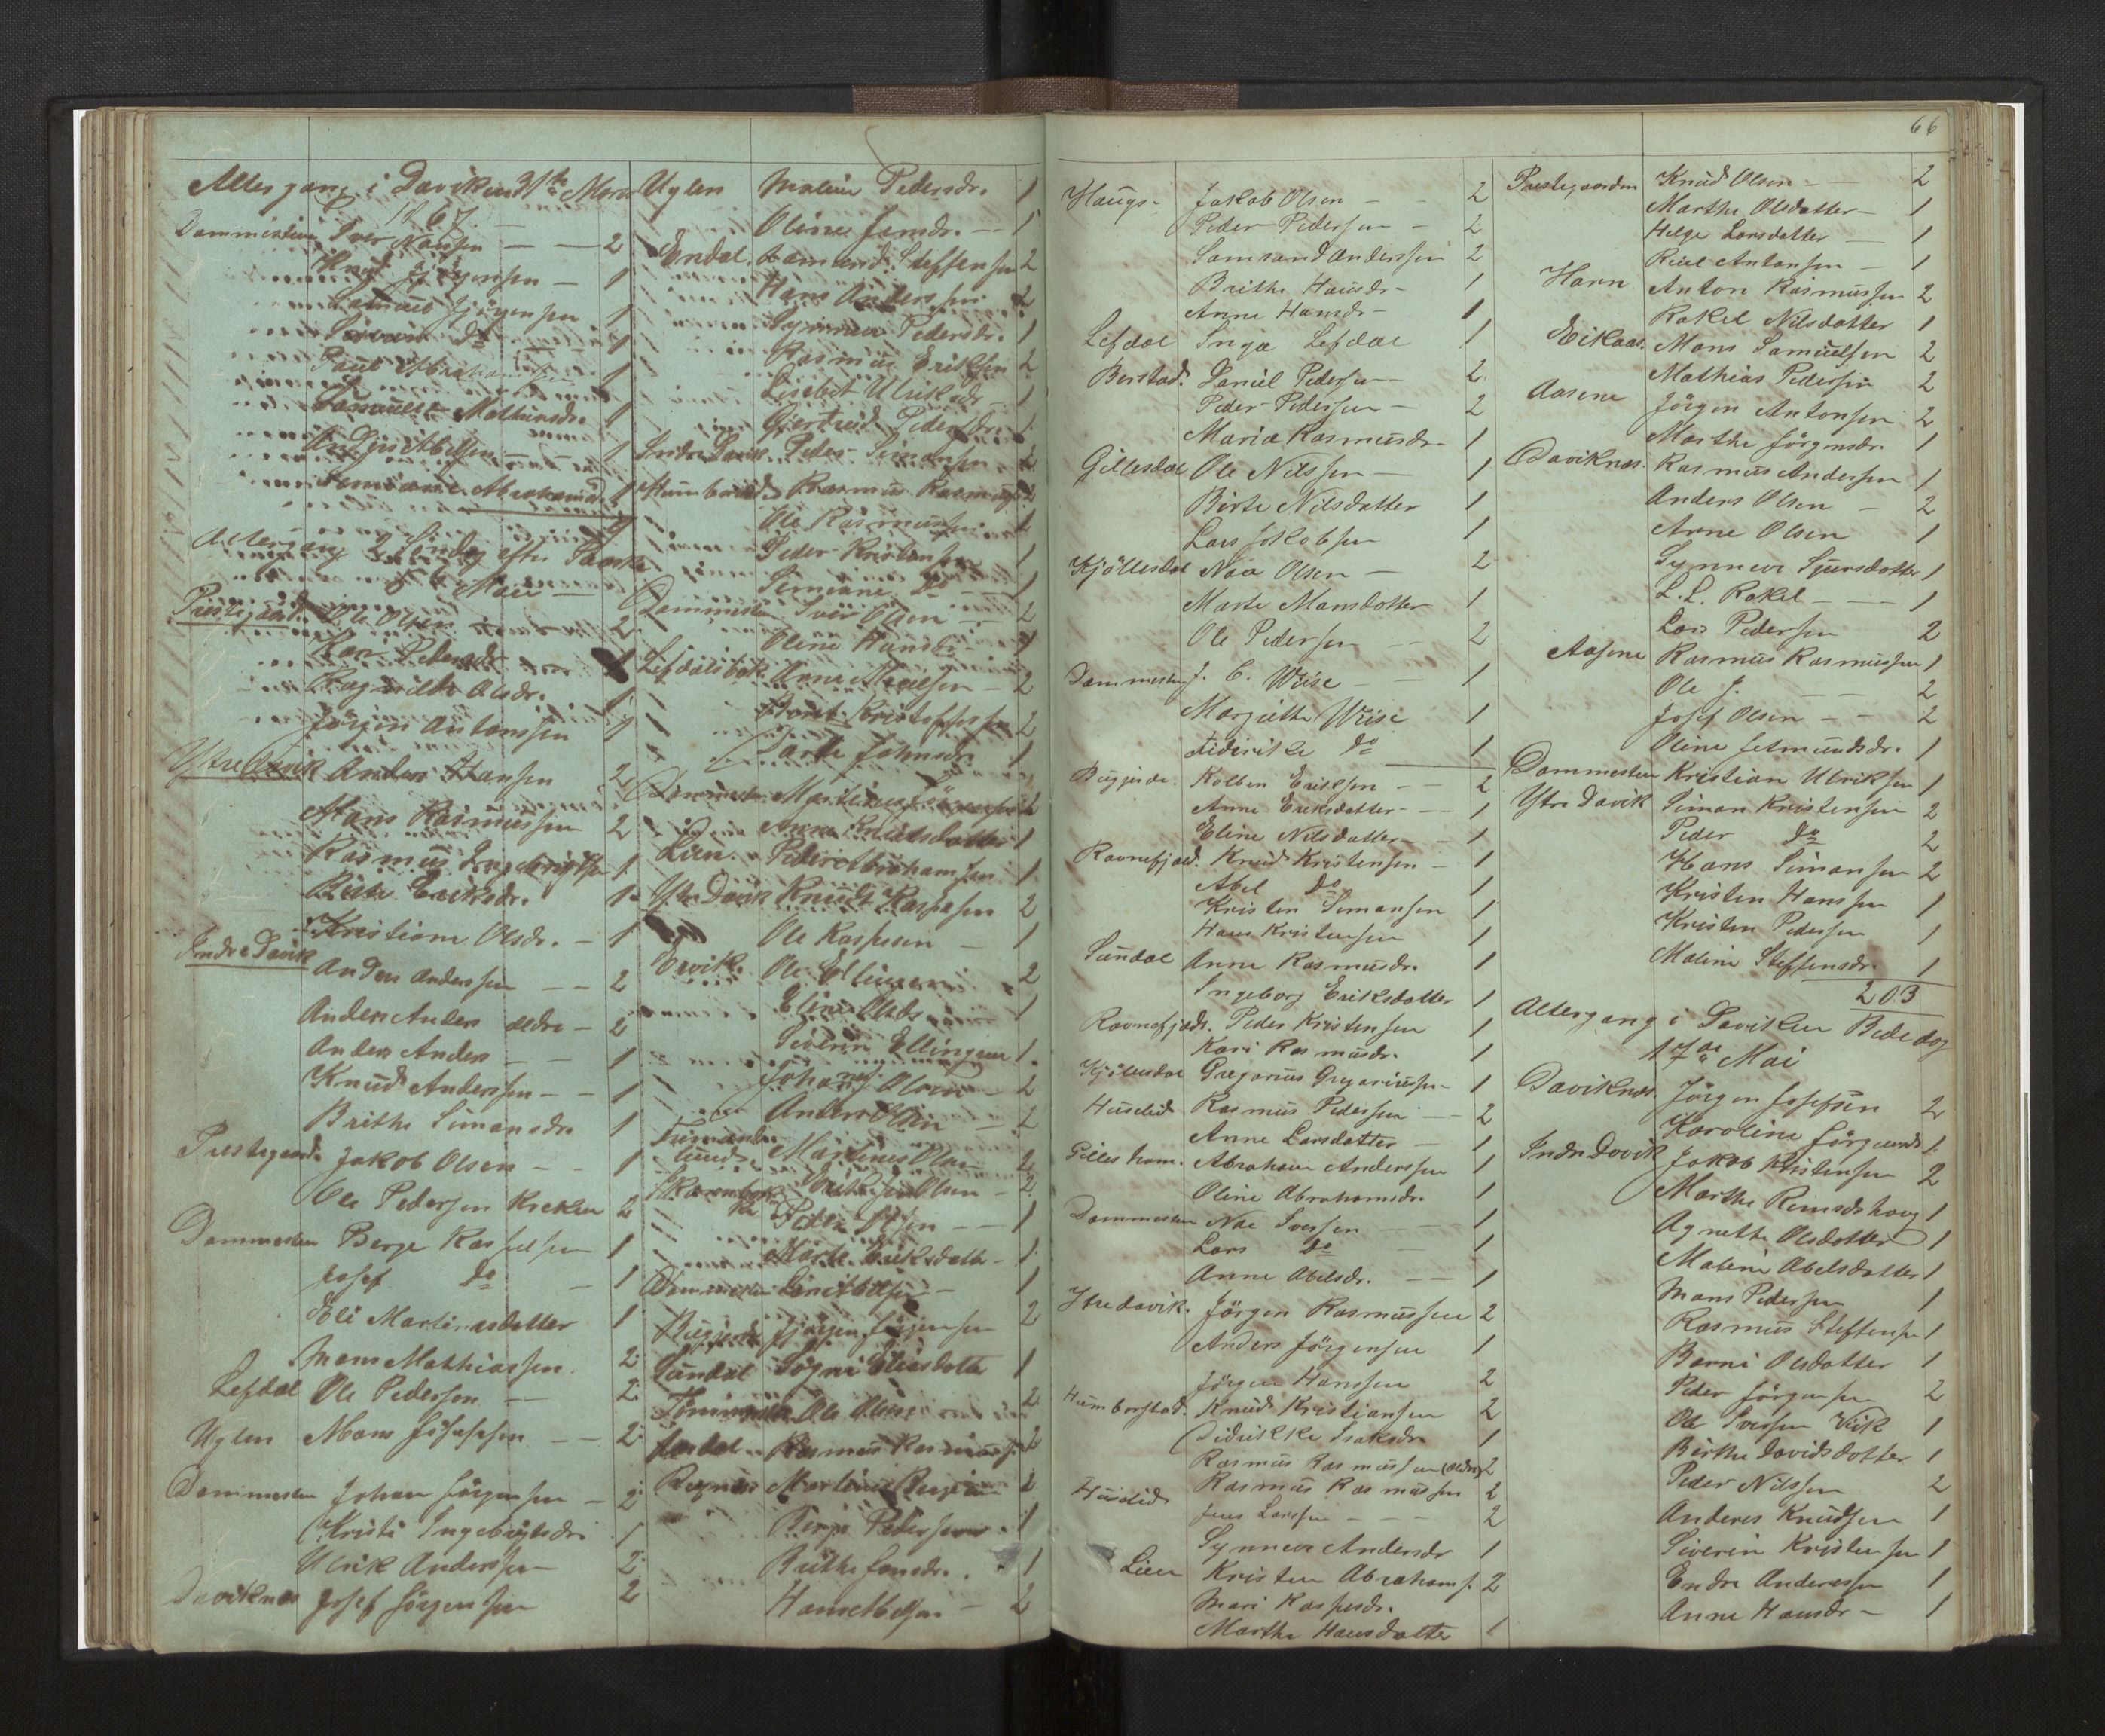 Altergang i Daviken 31te Marts
1867
Dammesten Iver Nonsen — 2
Knud Jörgensen — 1
Samuel Jjörgensen 1
Do 1
Paul Abrahamsen 1
Mathiasdr. 1
Abelsen 1
Abrahamsdr. 1
Altergang 2 Söndag efter Paaske
5 Mai
Prestegaard. Ole Olsen 2
Kari Pedersdr.
Ragnilde Olsdr. 1
Jörgen Antonssen 1
Ytre Davik Anders Hansen 2
Hans Rasmussen 2
Rasmus Ingebrigtsen 1
Birthe Eriksdr. 1
Kristiane Olsdr. — 1
Indre Davik
Anders Anderssen — 2
Anders Anders ældre — 2
Anders Anders — 1
Knud Anderssen — 1
Brithe Simonsdr. 1
Prestegaard. Jakob Olsen — 1
Ole Pedersen 2
Dammesten Berge Kaspersen 1
Josef Do — 1
Eli Martinusdatter 1
Mons Mathiassen. 2
Lefdal Ole Pedersen — 2
Uglen Mons Josefsen — 2
Dammesten Johan Jörgensen — 2
Kristi Ingebrigtsdr. 1
Ulrik Anderssen 2
Daviknes Josef Jörgensen 2
Uglen Malene Pedersdr. 1
Oline Jonsdr. — 1
Endal. Amund Steffensen 2
Hans Anderssen 2
Synneve Pedersdr. 1
Rasmus Eriksen 2
Lisebet Ulriksdr. 1
Gjertrud Pedersdr. 1
Indre Davik. Peder Simonsen 2
Humborstad. Rasmus Rasmus. 2
Ole Rasmussen
Peder Kristensen 1
Do 1
Dammesten Iver Olsen — 2
Oline Hansdr. 1
Lefdalsbak. Arne — 2
Kristoffersen 2
Jonsdr. 1
Dammesten 2
Anne Knudsdatter 1
Lien. Peder Abrahamsen 1
Ytre Davik Knud Kaspersen 2
Ole Kaspersen — 1
Ervik. Ole Ellingsen 2
Eline Olsdr. 1
Severin Ellingsen 1
Johannes Olsen 2
Anders Olsen 2
Martinus Olsen 2
Olsen — 2
Peder Olsen — 1
Marte Eriksdatter — 1
Dammesten — 1
Jörgen Jörgensen 2
Sundal Eliasdatter 1
Ole Olsen 2
Rasmus Rasmussen 2
2
Berge Pedersen 1
Brithe Jonsdr. 1
Hans Abelsen — 2
66
Haugs- Jakob Olsen — 2
Peder Pedersen — 2
Samsand Anderssen 2
Brithe Hansdr — 1
Anne Hansdr — 1
Lefdal Inga Lefdal 1
Borstad. Daniel Pedersen 2
Peder Pedersen — 2
Maria Rasmusdr — 1
Gillesdal Ole Nilssen — 1
Birte Nilsdatter 1
Lars Jakobsen 1
Kjöllesdal Naa Olsen — 2
Marte Monsdatter 1
Ole Pedersen — 2
Dammesten J. C. Wiise — 1
Margrethe Wiise 1
Didirike Do 1
Buggjerde. Kolben Eriksen — 2
Anne Eriksdatter — 1
Eline Nilsdatter — 1
Ravnefjæld. Knud Kristensen — 1
Abel Do 1
Kristen Simonsen 1
Hans Kristensen 1
Sundal Anne Rasmusdr. 1
Ingeborg Eriksdatter 1
Ravnefjæld. Peder Kristensen 1
Kari Rasmusdr. 1
Kjöllesdal Gregorius Gregoriussen 1
Huselid Rasmus Pedersen — 2
Anne Larsdatter — 1
Gilles ham. Abraham Anderssen 1
Oline Abrahamsdr. 1
Dammesten Nae Iverssen — 1
Lars Do — 1
Anne Abelsdr. — 1
Ytredavik. Jörgen Rasmussen 2
Anders Jörgensen 1
Jörgen Hanssen 2
Humborstad. Knud Kristiansen 2
Didrikke Isaksdr 1
Rasmus Rasmussen (ældre) 2
Huselid Rasmus Rasmussen 2
Jens Larssen — 2
Synneve Andersdr 1
Lien Kristen Abrahams. 2
Mari Kaspersdr.
Marthe Hansdatter 1
Prestegaarden Knud Olsen — 2
Marthe Olsdatter — 1
Helge Larsdatter — 1
Antonsen — 1
Havn Anton Rasmussen 2
Rakel Nilsdatter 1
Eikaas. Mons Samuelsen 2
Mathias Pedersen 2
Aasene Jörgen Antonsen 2
Marthe Jörgensdr. 1
Daviknes. Rasmus Anderssen 1
Anders Olsen — 2
Anne Olsen 1
Synneve Sjursdatter 1
L. L. Rakel — 1
Lars Pedersen 2
Aasene Rasmus Rasmussen 1
Ole J. — 2
Josef Olsen — 2
Oline Setmundsdr. 1
Dammesten Kristian Ulriksen 1
Ytre Davik Simon Kristensen 2
Peder Do 2
Hans Simonsen 2
Kristen Hanssen 1
Kristen Pedersen 1
Malene Steffensdr. 1
203
Altergang i Daviken Bededag
17de Mai
Daviknes. Jörgen Josefsen 2
Karoline Jörgensd. 1
Indre Davik Jakob Kristensen 2
Marthe Rimdshoug 1
Agnethe Olsdatter 1
Malene Abelsdatter 1
Mons Pedersen 1
Rasmus Steffensen 1
Barni Olsdatter 1
Peder Jörgensen 2
Ole Iverssen Viik 1
Birthe Davidsdatter 1
Peder Nilssen 2
Anders Knudsen 1
Siverin Kristensen 1
Endre Anderssen 1
Anne Hansdr — 1